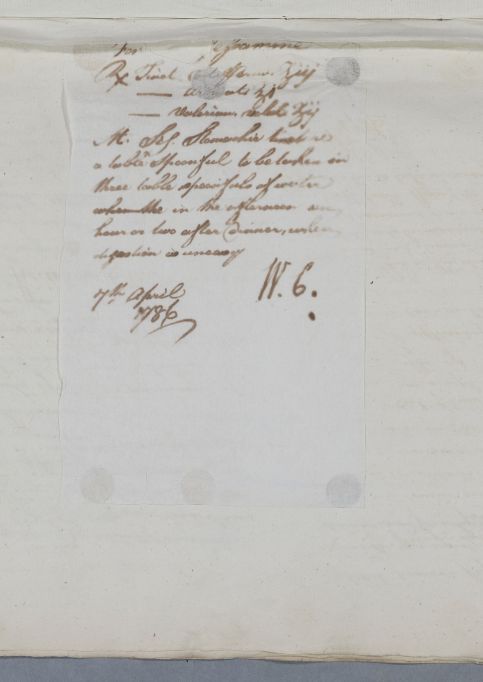 For
Rx Tinct. ʒiij
— ʒj
— Valerian. Volat. ʒij
M. Sig. Stomachic tincture
a table Spoonful to be taken in
three table spoonfuls of water
in the afternoon an
hour or two after Dinner, when
digestion is uneasy
W. C.
7th April
1786